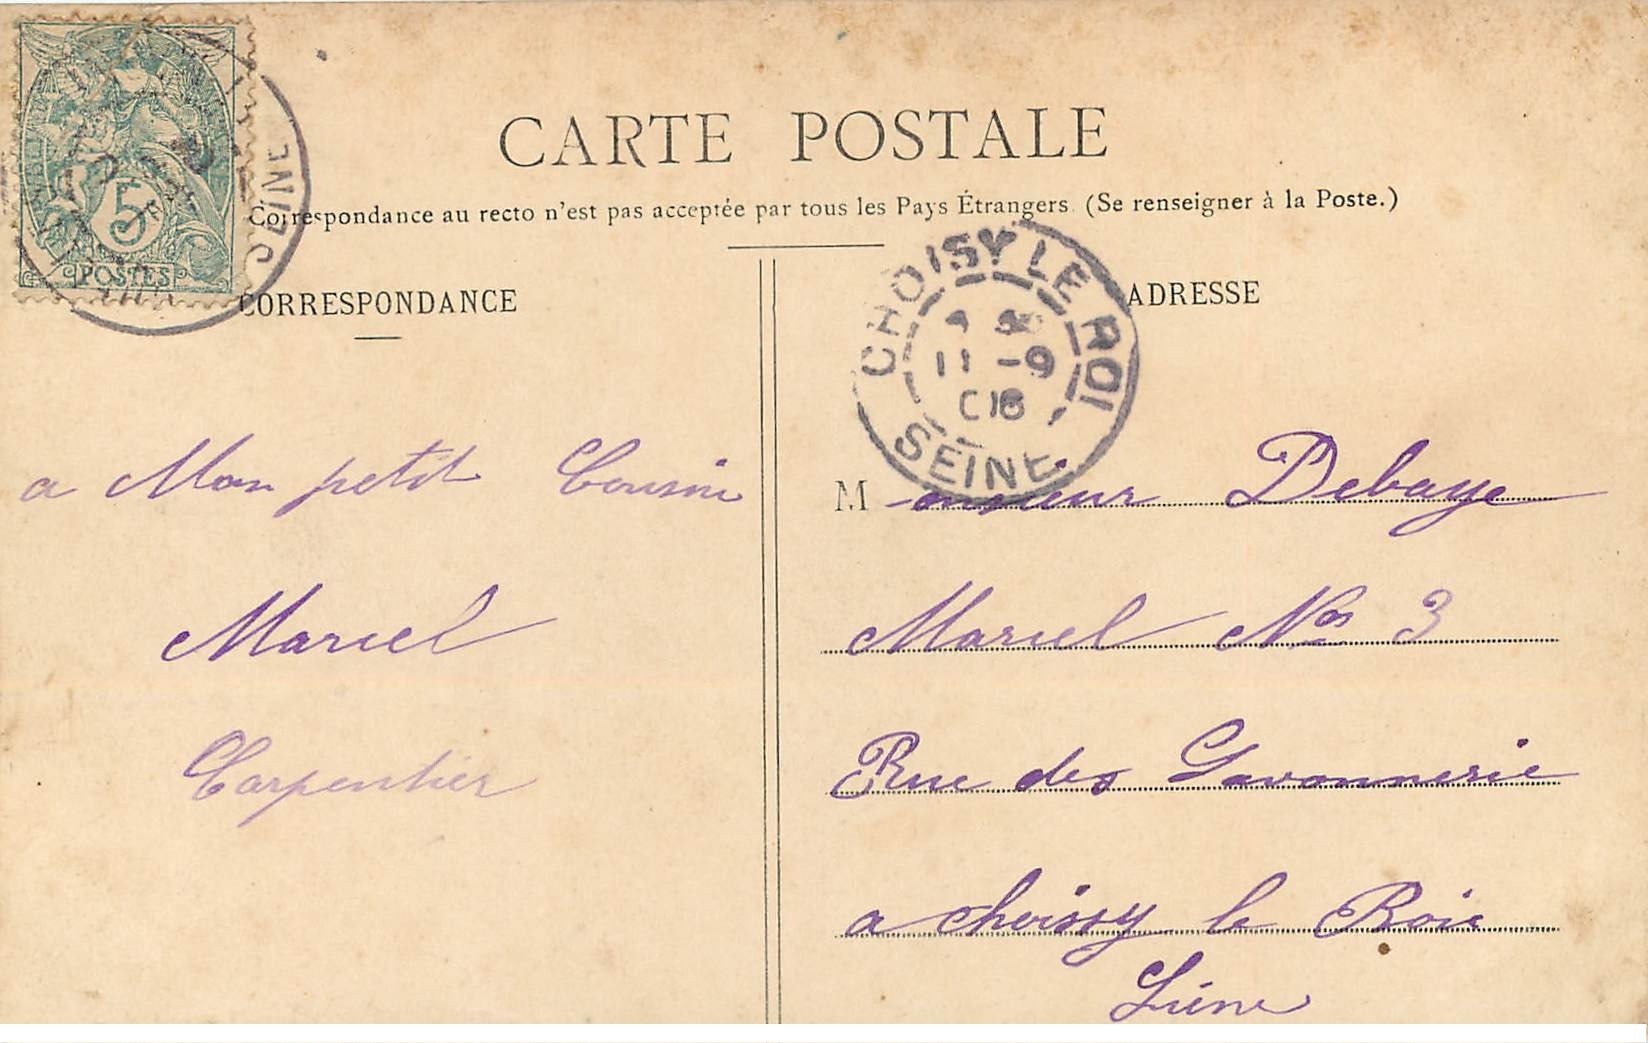 CARTE POSTALE
Correspondance au recto n'est pas acceptée par tous les Pays Étrangers. (Se renseigner à la Poste.)
5
POSTES
SEINE
CORRESPONDANCE
a Mon petit Cousin
Marcel
Carpentier
CHOISY LE ROI
11 -9
SEINE
ADRESSE
Monsieur Debaye
Marcel Nos 3
Rue des Gavonnerie
a choissy le Roie
Siene